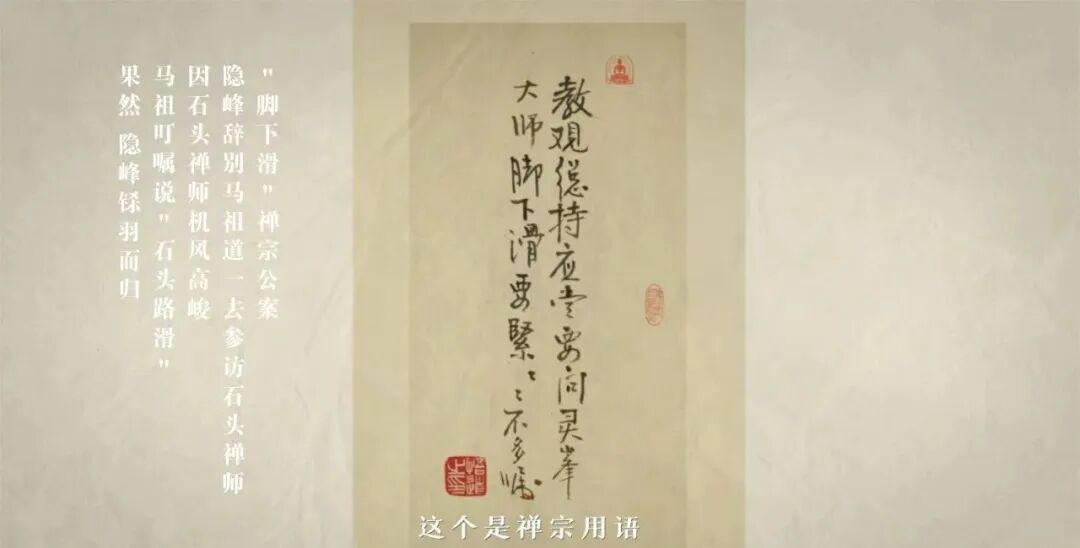 教观緫持应当要问灵峯
大师脚下滑要緊〻〻不多嘱
"脚下滑"禅宗公案
隐峰辞别马祖道一去参访石头禅师
因石头禅师机风高峻
马祖叮嘱说"石头路滑"
果然 隐峰铩羽而归
这个是禅宗用语